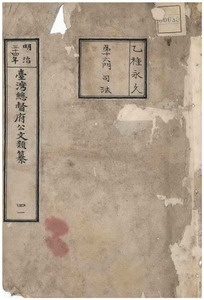 乙種永久
第十六門 司法
明治
三十四年
臺灣總督府公文類纂
四一